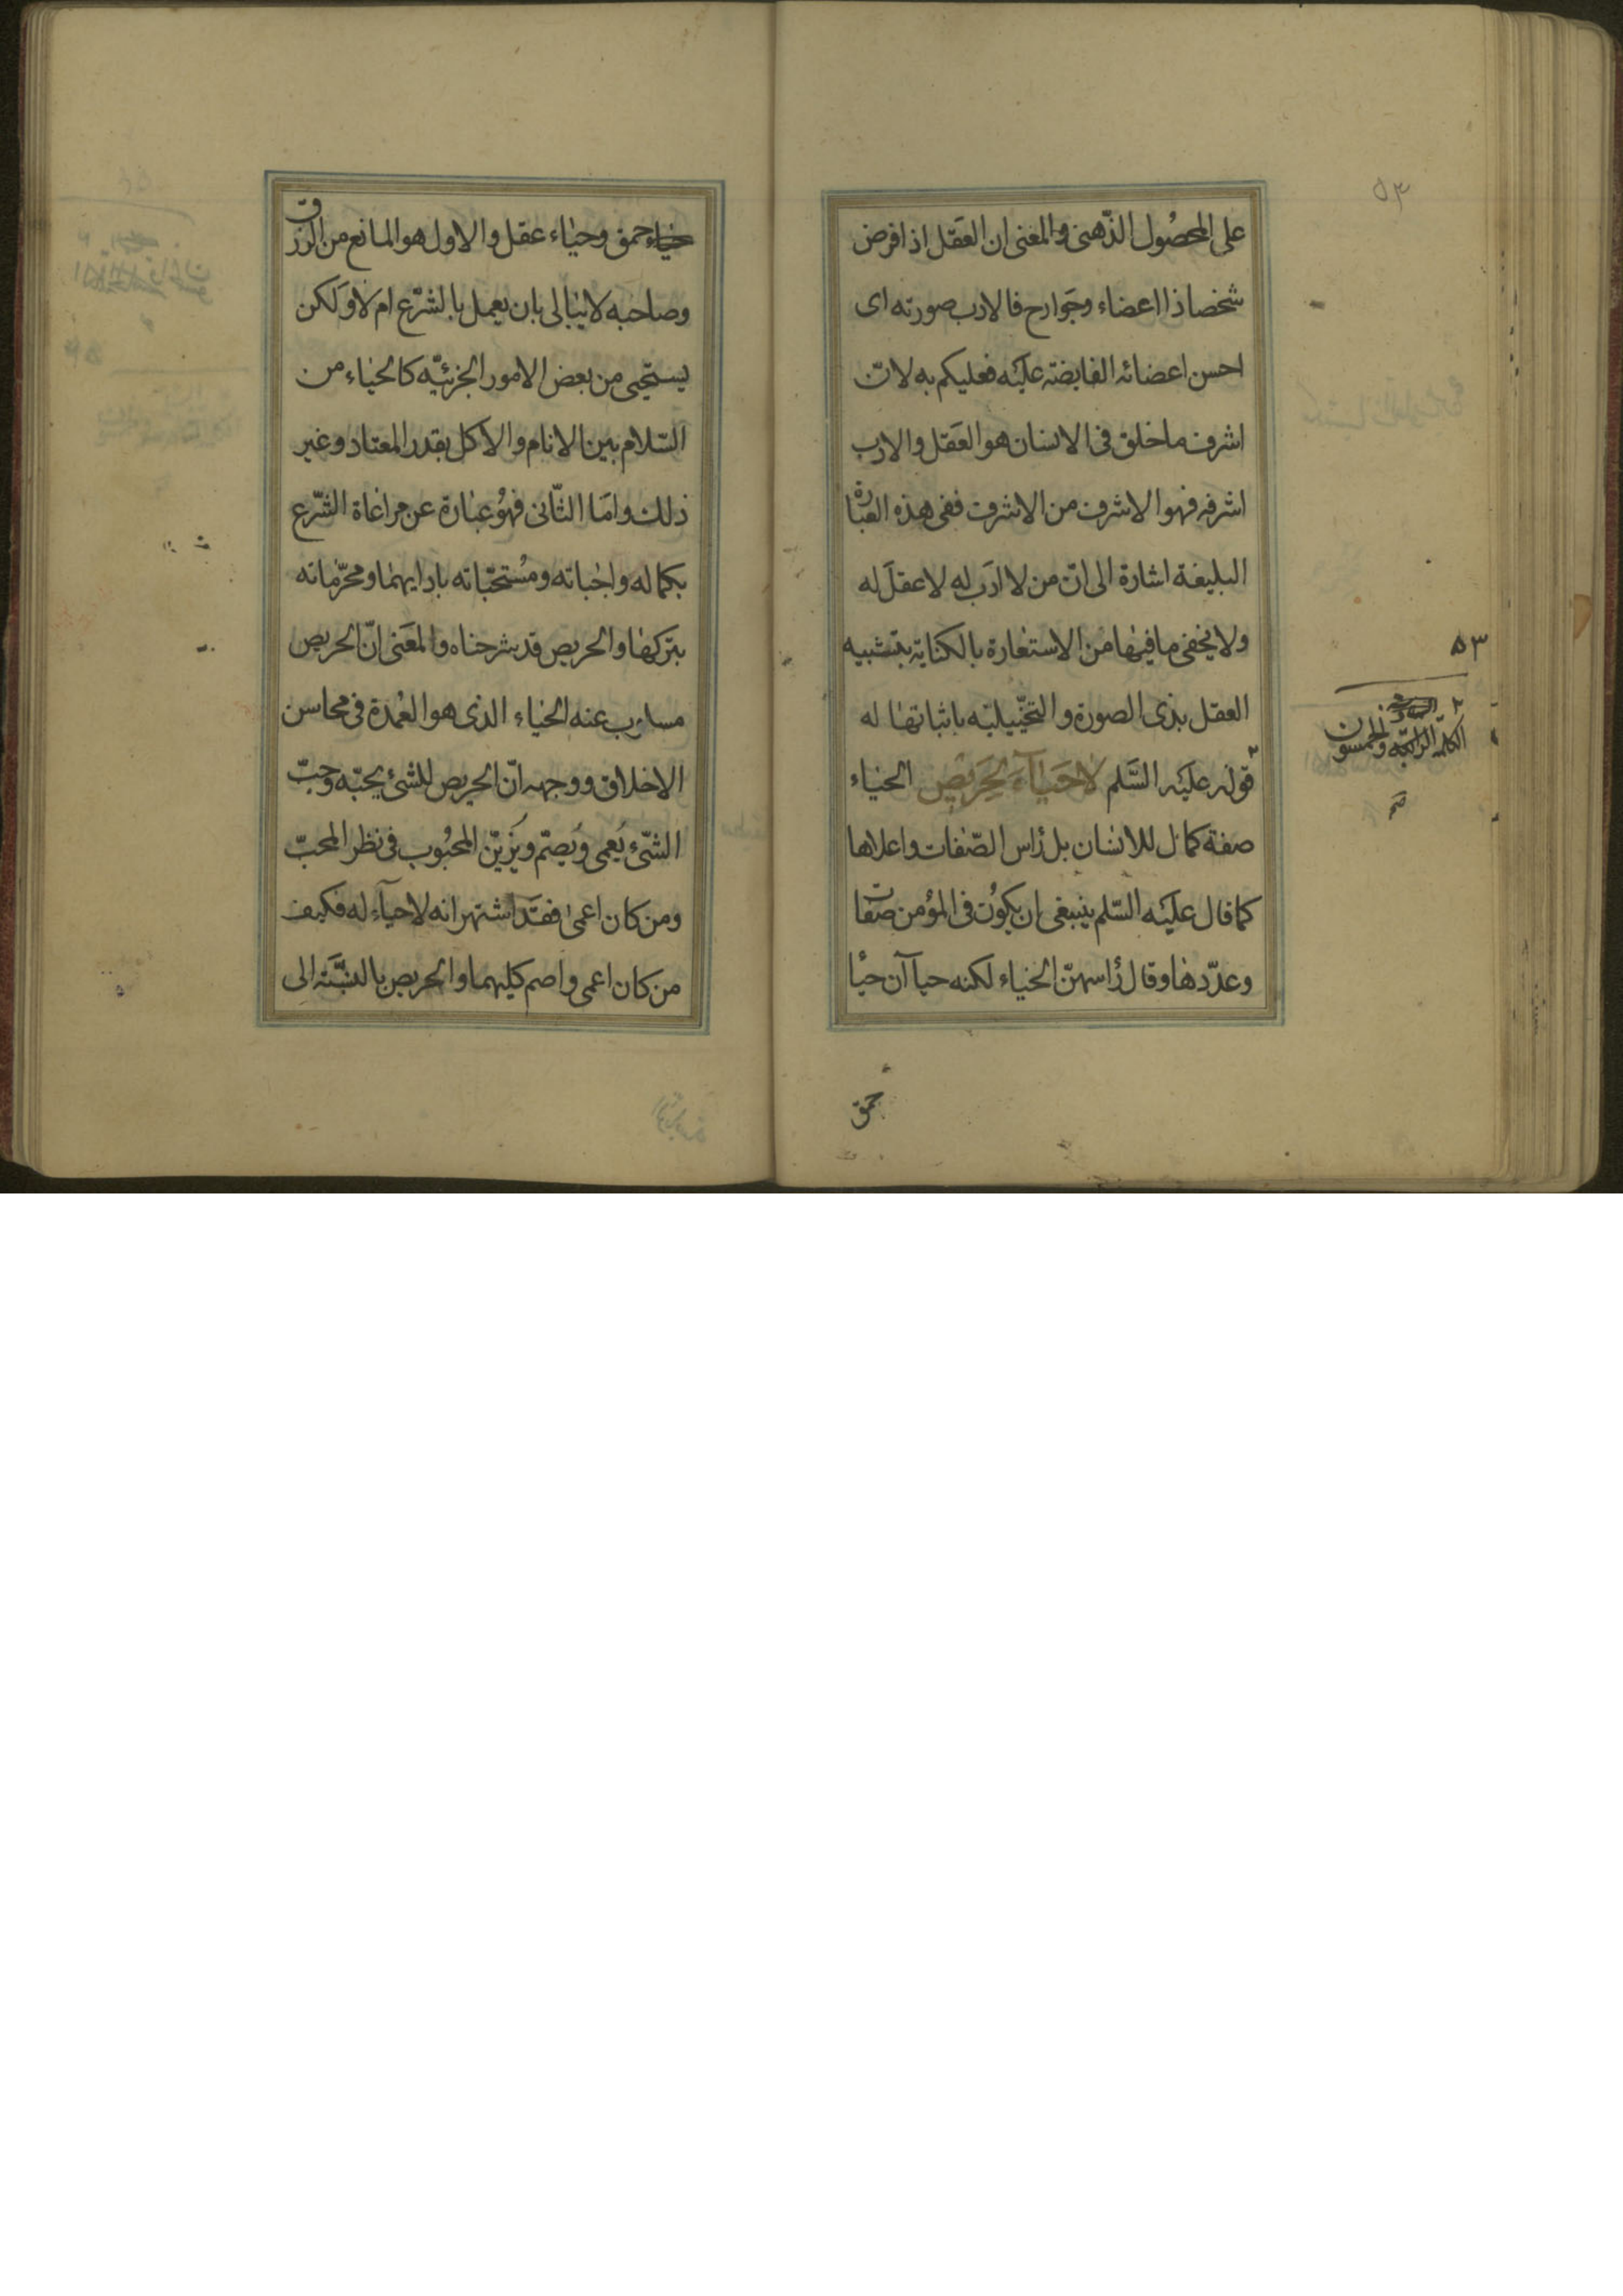 على المحصول الذّهنى والمعنى ان العقل اذا فرض
شخصا ذا اعضاء وجوارح فالادب صورته اى
احسن اعضائه الفايضته عليه فعليكم به لانّ
اشرف ما خلق فى الانسان هو العقل والادب
اشرفه فهو الاشرف من الاشرف ففى هذه العبارة
البليغة اشارة الى انّ من لا ادب له لا عقل له
ولا يخفى ما فيها من الاستعارة بالكناية بتشبيه
العقل بذى الصورة والتخييليّه باثباتها له
قوله عليه السّلم لا حَيآءَ لِحَريصٍ الحياء
صفة كمال للانسان بل رأس الصّفات واعلاها
كما قال عليه السّلم ينبغى ان يكون فى المؤمن صفات
وعدّدها وقال رأسهنّ الحياء لكنه حياآن حيا
حمق
٥٣
٥٣
الكلمة الرابعة والخمسون
حياء حمق وحياء عقل والاول هو المانع من الرزق
وصاحبه لا يبالى بان يعمل بالشّرع ام لا ولكن
يستحيى من بعض الامور الجزئيّه كالحياء من
السّلام بين الانام والاكل بقدر المعتاد وغير
ذلك وامّا الثّانى فهو عبارة عن مراعاة الشّرع
بكماله واجباته ومستحبّاته بادايهما ومحرّماته
بتركها والحريص قد شرحناه والمعنى انّ الحريص
مسلوب عنه الحياء الذى هو العمدة فى محاسن
الاخلاق ووجهه انّ الحريص للشئ يحبّه وحبّ
الشّئ يُعمى ويصمّ ويزيّن المحبوب فى نظر المحبّ
ومن كان اعمى فقد اشتهر انه لا حيآء له فكيف
من كان اعمى واصم كليهما والحريص بالنسبة الى